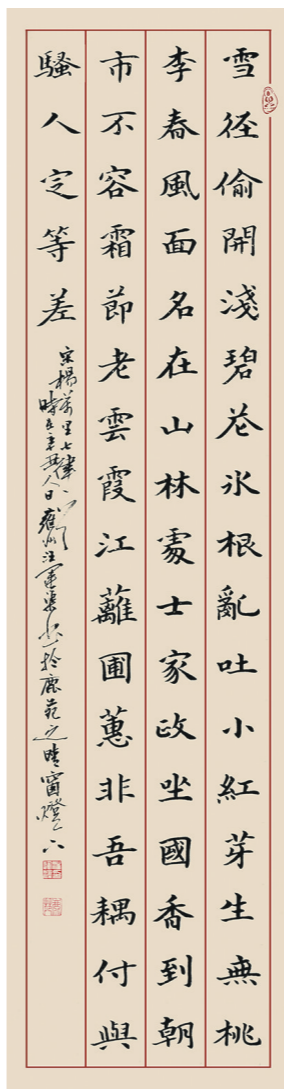 雪径偷開淺碧花氷根亂吐小紅芽生無桃
李春風面名在山林處士家政坐國香到朝
市不容霜節老雲霞江蘺圃蕙非吾耦付與
騷人定等差
宋楊萬里七律
時在辛丑人日 於鹿苑之晴窗燈下